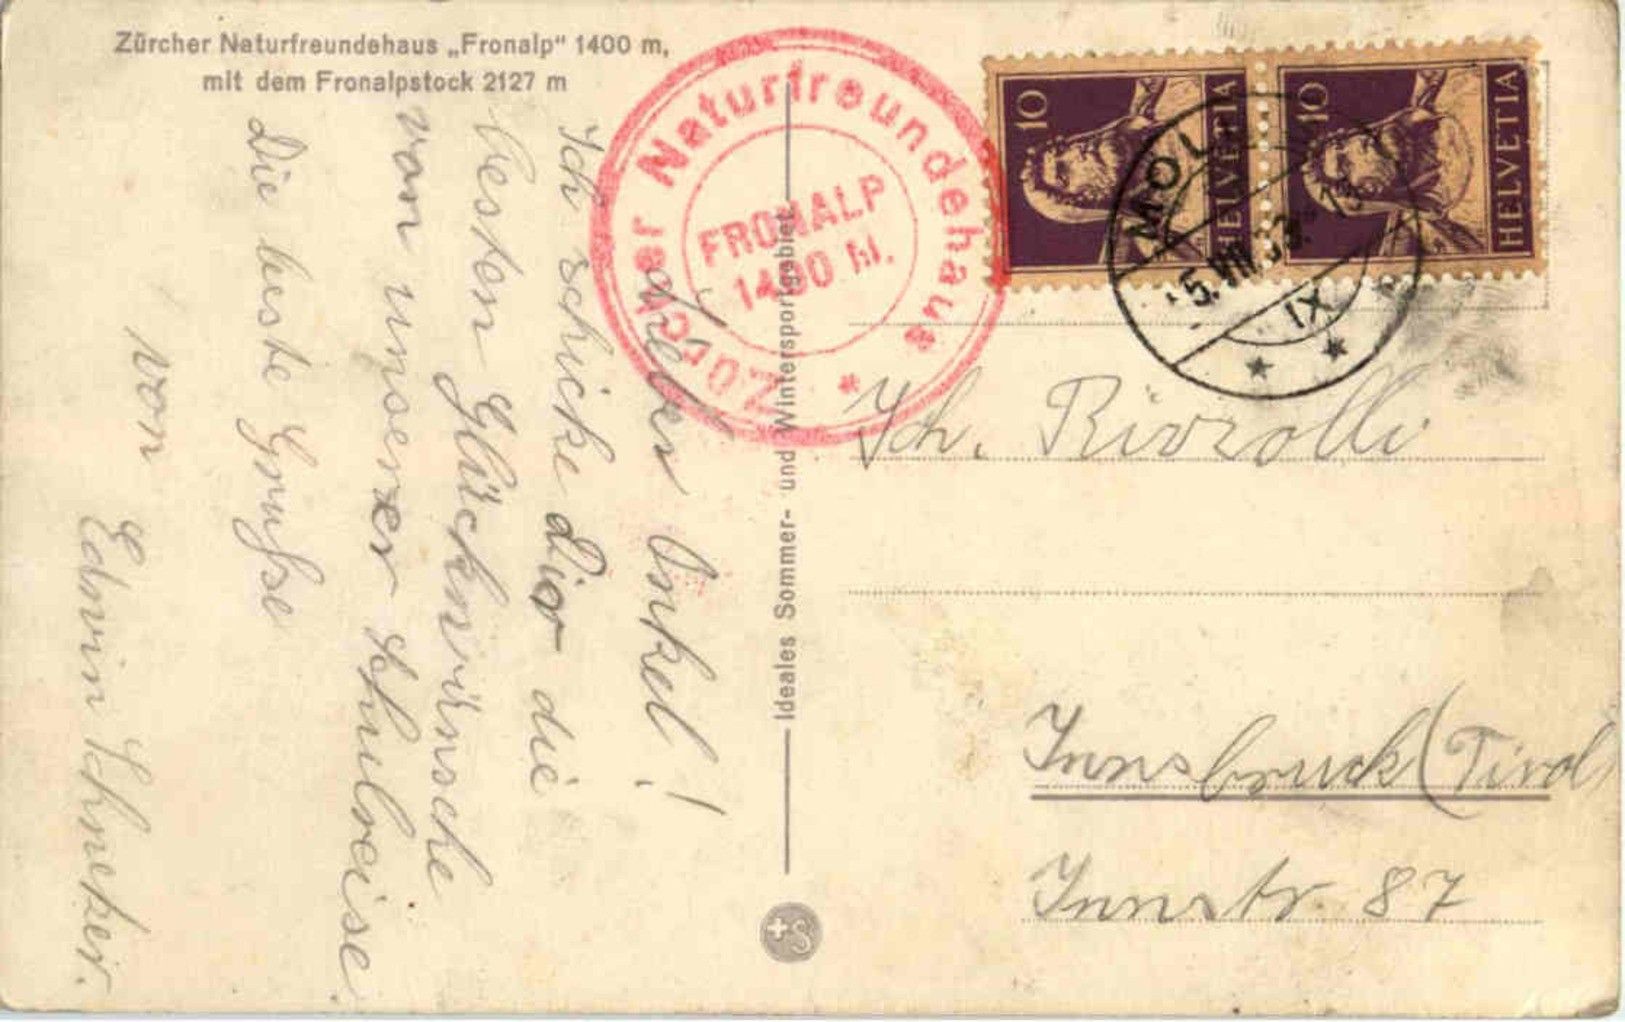 Zürcher Naturfreundehaus „Fronalp“ 1400 m,
mit dem Fronalpstock 2127 m
Zürcher Naturfreundehaus
FRONALP
1400 M.
10
HELVETIA
10
HELVETIA
5. VIII.
IX
Lieber Onkel!
Ich schicke Dir die
besten Glückwünsche
von unserer Schulreise
Die beste Grüsse
von
Edwin
Ideales Sommer- und Wintersportgebiet
Joh.
Innsbruck (Tirol
Innstr. 87